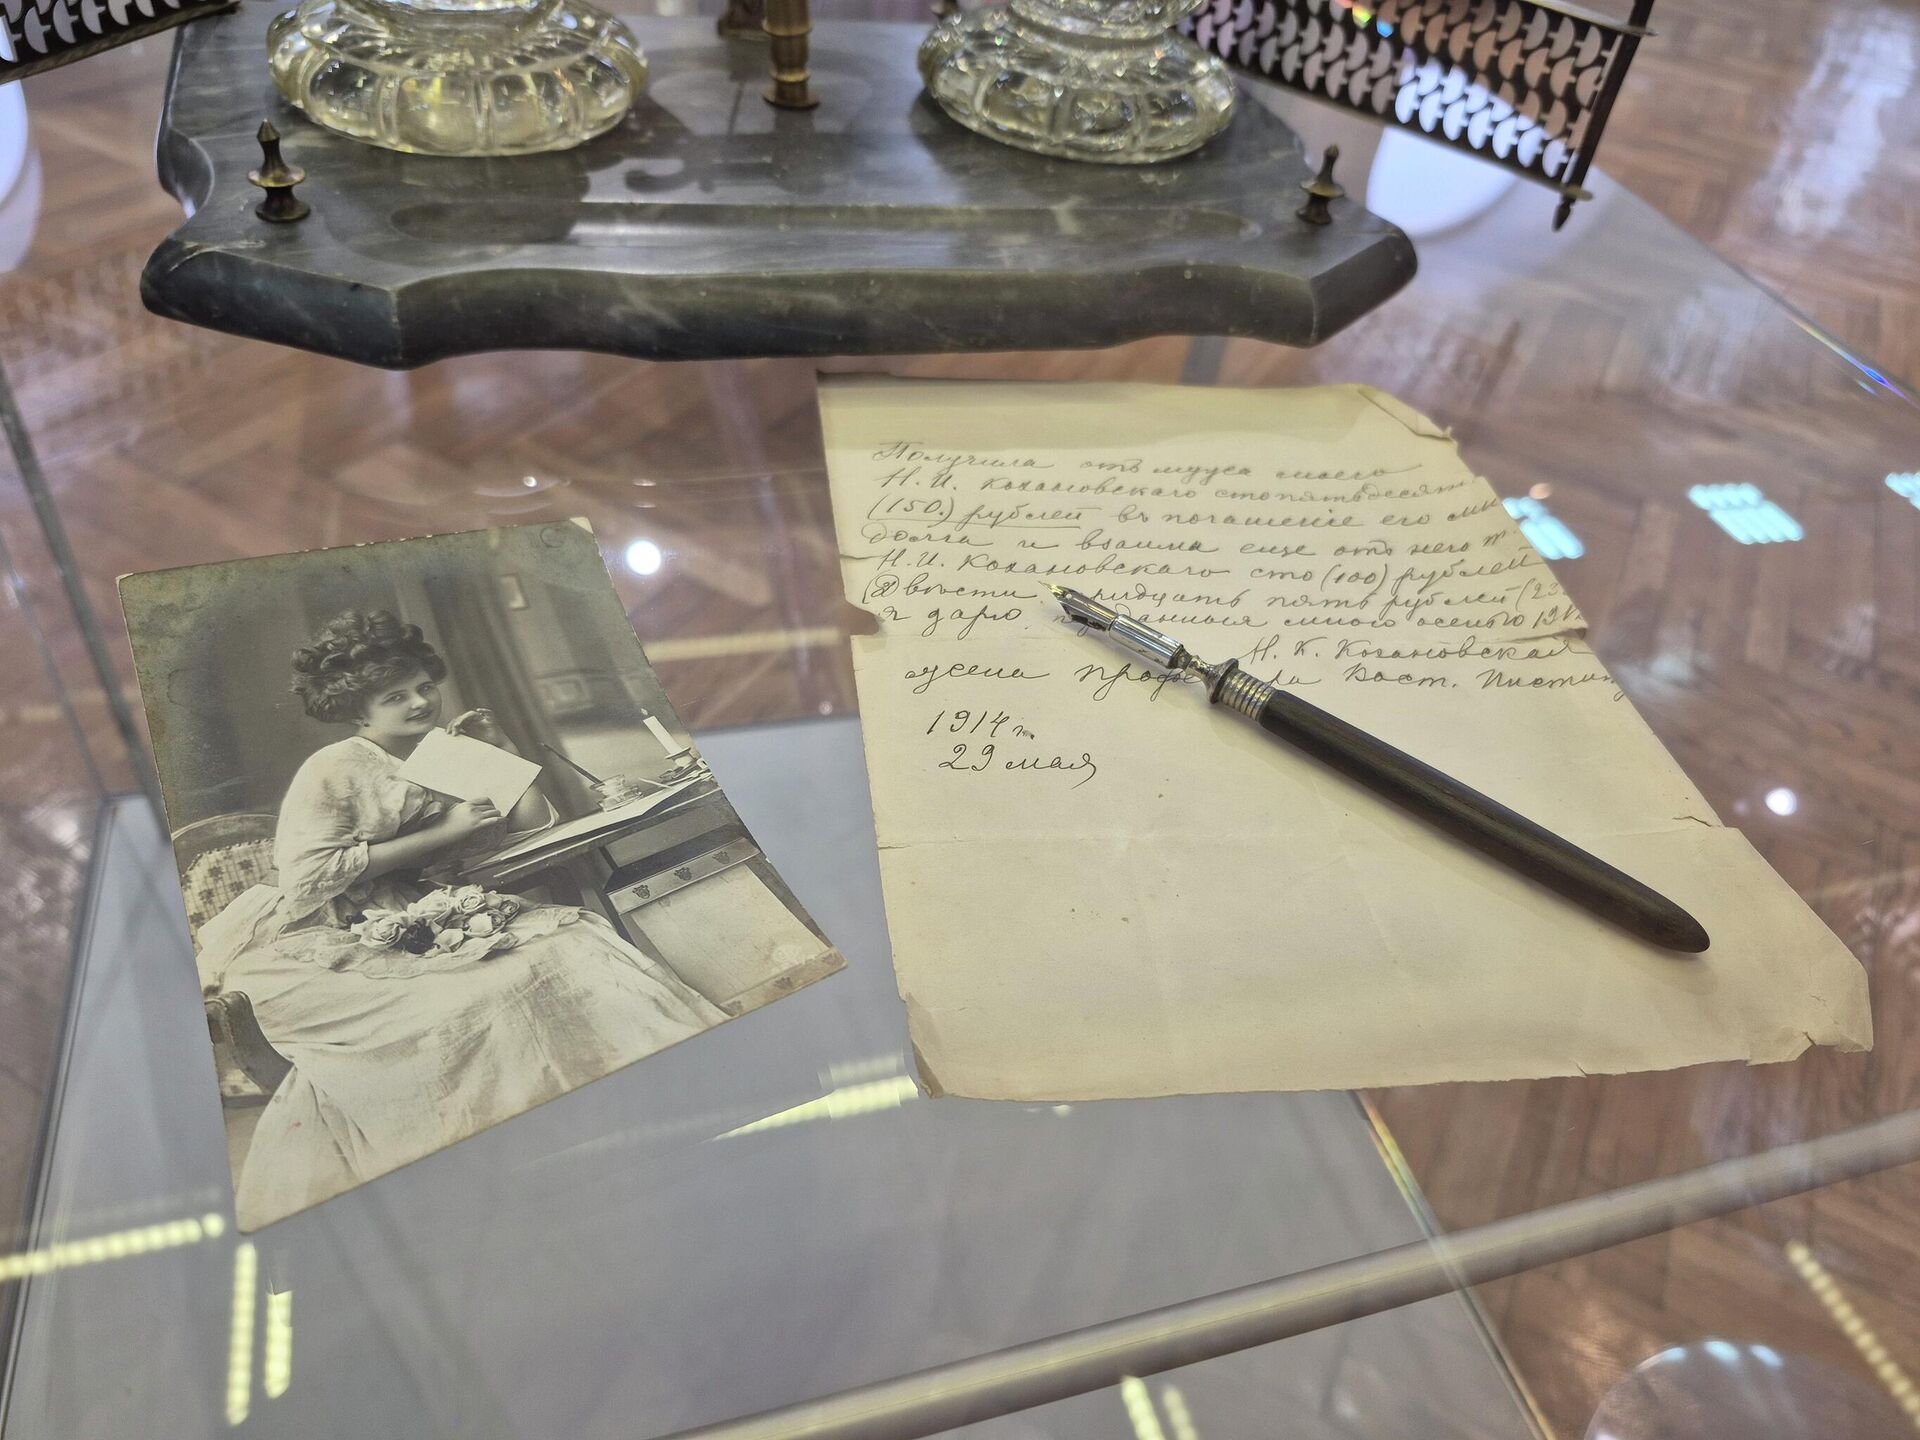 Получила отъ мужа моего
Н. И. Кохановскаго стопятьдесят
(150.) рублей въ погашеніе его мн
долга и взаима еще отъ него
Н. И. Кохановскаго сто (100) рублей
Двѣсти тридцать пять рублей (23
я дарю данныя мною осенью 191
Н. К. Кохановская
жена профе ра Вост. Институ
1914 г.
29 мая